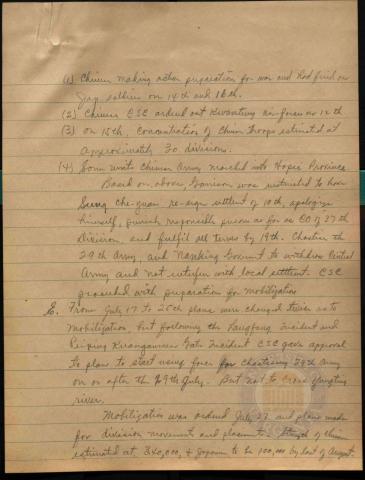 (1) Chinese making active preparation for war and had fired on
Jap soldiers on 14th and 16th.
(2) Chinese CSC ordered out Kwantung air forces on 12th
(3) on 15th, Concentration of Chinese troops estimated at
approximately 30 divisions.
(4) Some units Chinese Army marched into Hopei Province
Based on above Garrison was instructed to have
Sung Che-yuan re-sign settlement of 10th, apologize
himself, punish responsible persons as far as CO of 37th
division and fulfil all terms by 19th. Chastise the
29th Army, and Nanking Government to withdraw Central
Army and not interfere with local settlement. CSC
proceeded with preparation for mobilization
6. From July 17 to 26th plans were changed twice as to
Mobilization, but following the Langfang incident and
Pei-ping Kwanganmen Gate Incident CSC gave approval
to plans to start using force for chastising 29th Army
on or after the 29th July. But not to cross Yungting
river.
Mobilization was ordered July 27 and plans made
for division movements and placements. Strength of Chinese
estimated at 340,000, & Japanese to be 100,000 by last of August.